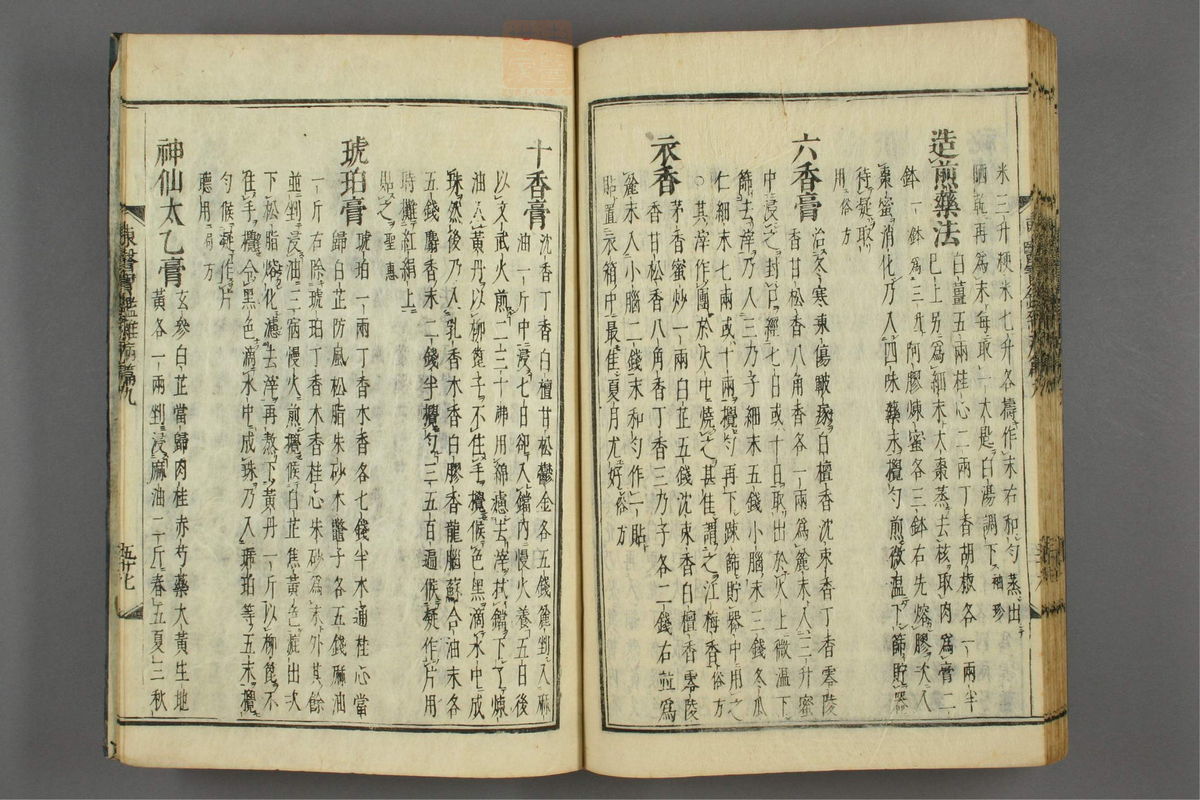 米三升粳米七升各擣作末右和勻蒸出
晒乾再爲末每取一大匙白湯調下袖珍
造煎藥法白薑五兩桂心二兩丁香胡椒各一兩半
已上另爲細末大棗蒸去核取肉爲膏二
鉢一鉢爲三升阿膠煉蜜各三鉢右先熔膠次入
棗蜜消化乃入四味藥末攪勻煎微温下篩貯器
待凝取
用俗方
六香膏治冬寒凍傷皸瘃白檀香沈束香丁香零陵
香甘松香八角香各一兩爲麄末入三升蜜
中浸之封口經七日或十日取出於火上微温下
篩去滓乃入三乃子細末五錢小腦末三錢冬瓜
仁細末七兩或十兩攪勻再下踈篩貯器中用之
○其滓作團於火中燒之甚佳謂之江梅香俗方
衣香茅香蜜炒一兩白芷五錢沈束香白檀香零陵
香甘松香八角香丁香三乃子各二錢右並爲
麄末入小腦二錢末和勻作一貼
貼置衣箱中最佳夏月尤好俗方
十香膏沈香丁香白檀甘松鬱金各五錢麄剉入麻
油一斤中浸七日卻入鐺内慢火養五日後
以文武火煎二三十沸用綿濾去滓拭鐺下了煉
油入黃丹以柳篦子不住手攪候色黑滴水中成
珠然後乃入乳香木香白膠香龍腦蘇合油末各
五錢麝香末二錢半攪勻三五百遍候凝作片用
時攤紅絹上
貼之聖惠
琥珀膏琥珀一兩丁香木香各七錢半木通桂心當
歸白芷防風松脂朱砂木鱉子各五錢麻油
一斤右除琥珀丁香木香桂心朱砂爲末外其餘
並剉浸油三宿慢火煎攪候白芷焦黃色漉出次
下松脂熔化濾去滓再熬下黃丹一斤以柳篦不
住手攪令黑色滴水中成珠乃入琥珀等五末攪
勻候凝作片
應用局方
神仙太乙膏玄參白芷當歸肉桂赤芍藥大黃生地
黃各一兩剉浸麻油二斤春五夏三秋
東醫寶鑑雜病篇九